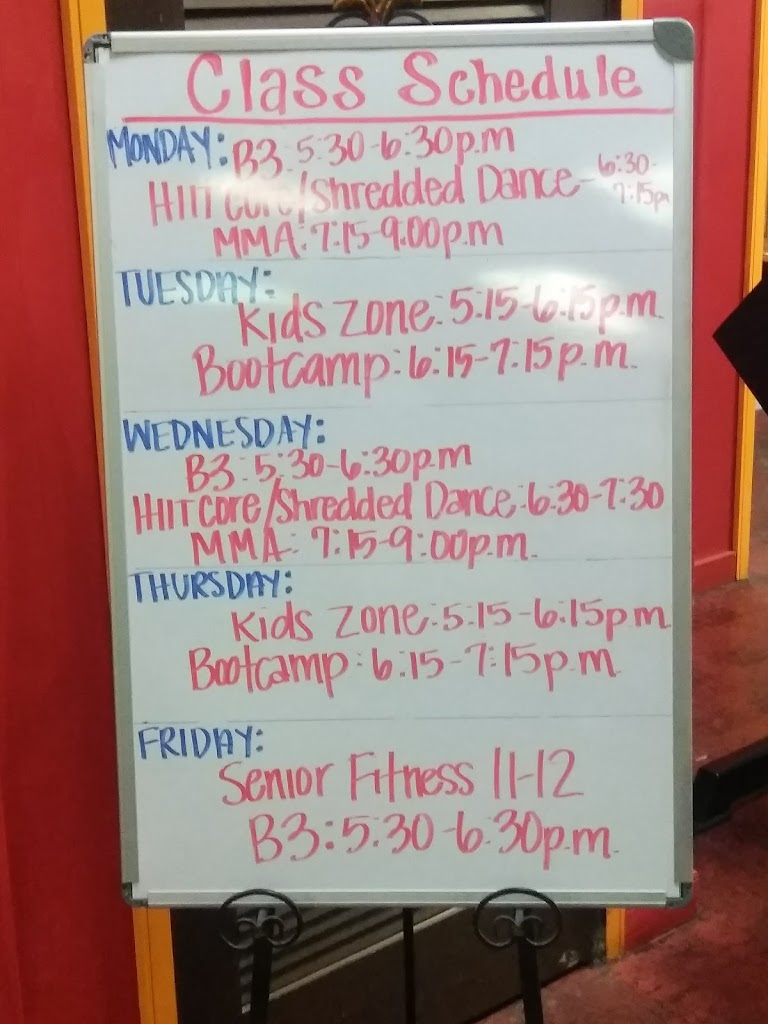 Class Schedule
MONDAY: B3: 5:30-6:30p.m
HIIT Core/Shredded Dance-6:30-
7:15pm
MMA: 7:15-9:00p.m
TUESDAY:
Kids Zone: 5:15-6:15p.m.
Bootcamp: 6:15-7:15p.m.
WEDNESDAY:
B3: 5:30-6:30p.m
HIIT Core/Shredded Dance-6:30-7:30
MMA: 7:15-9:00p.m.
THURSDAY:
Kids Zone: 5:15-6:15pm
Bootcamp: 6:15-7:15p.m.
FRIDAY:
Senior Fitness 11-12
B3: 5:30-6:30p.m.